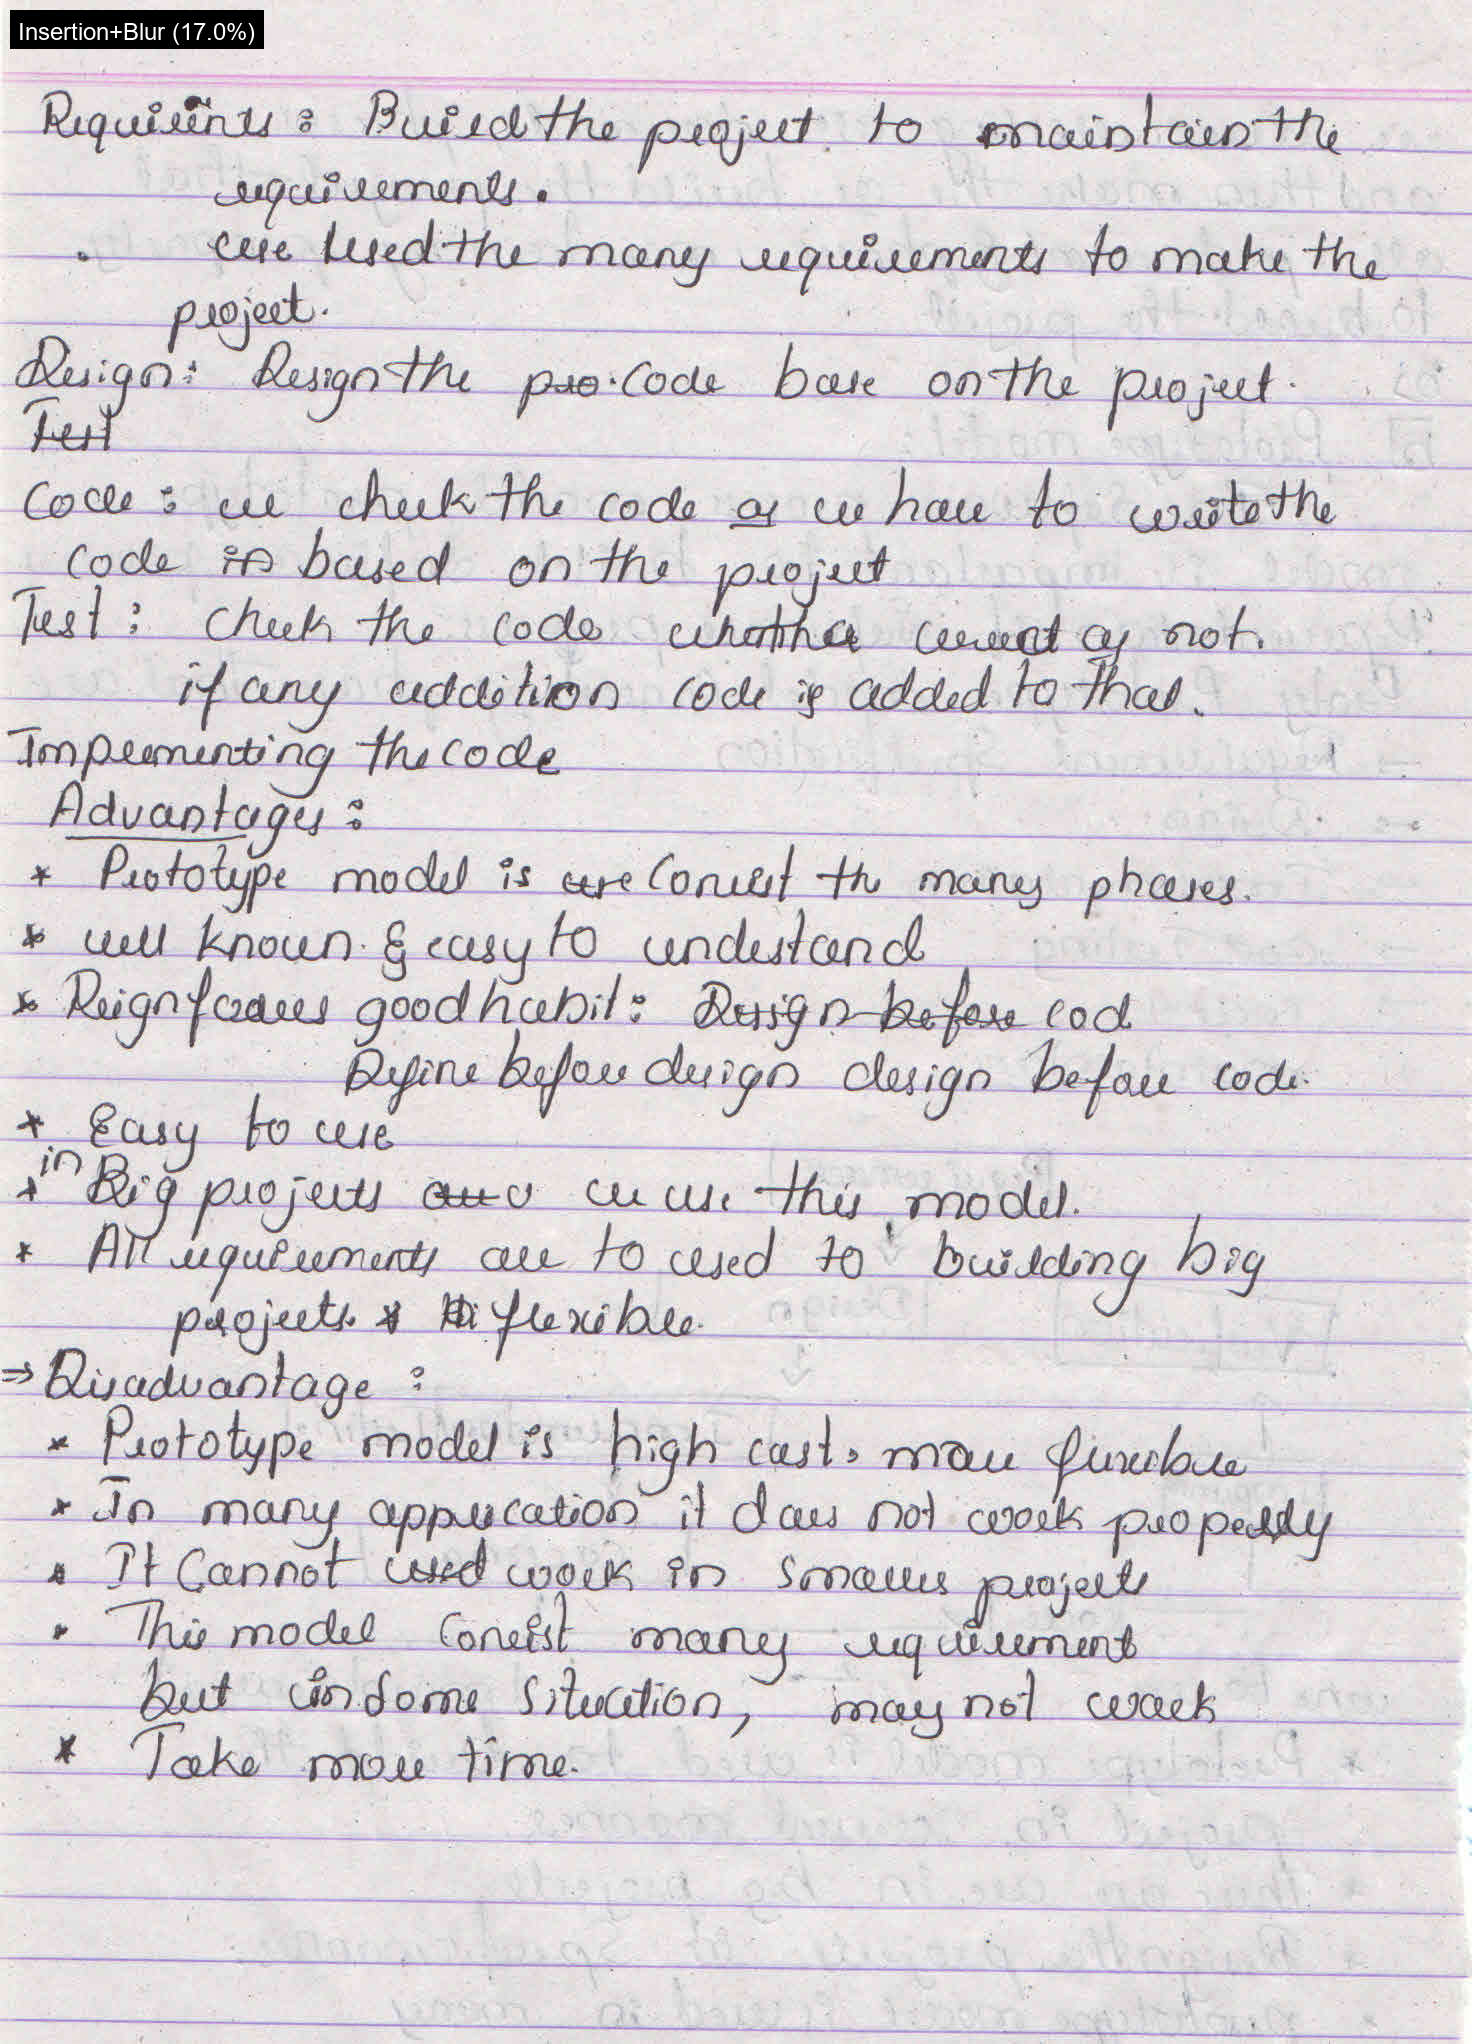 Insertion+Blur (17.0%)
Requiments : Build the project to maintain the
requirements.
. we used the many requirements to make the
project.
Design : Design the pro. code base on the project.
Test
Code : we check the code or we have to write the
code in based on the project
Test : check the code whether correct or not.
if any addition code is added to that.
Implementing the code
Advantages :
* Prototype model is are Consist the many phases.
* well known & easy to undestand
* Reignforces good habit : Design before cod
Define before design design before code.
* Easy to use
* in Big projects we use this model.
* All requirements are to used to building big
projects. * flexible.
⇒ Disadvantage :
* Prototype model is high cost. more flexible
* In many application it does not work properly
* It Cannot used work in smaller projects
* This model Consist many requirement
but in some situation, may not work
* Take more time.